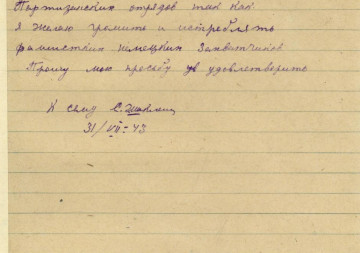 Партизанских отрядов так как
я желаю громить и истреблять
фашистких немецких захватчиков
Прошу мою просьбу удовлетворить
К сему
31/VII-43